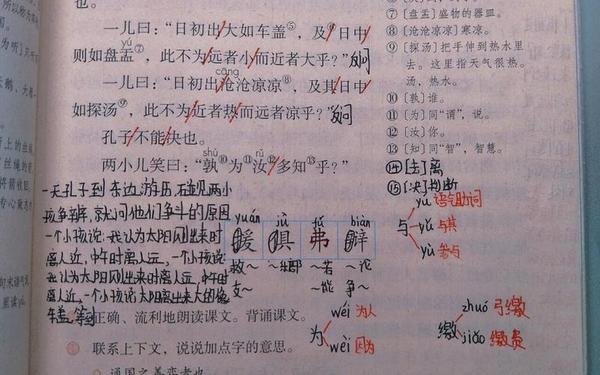 一儿曰：“日初出大如车盖⑤，及日中
yú
则如盘盂⑦，此不为远者小而近者大乎？”反问
一儿曰：“日初出沧沧凉凉⑧，及其日中
cāng
如探汤⑨，此不为近者热而远者凉乎？”反问
孔子不能决也。
shú rǔ
两小儿笑曰：“孰⑩为⑪汝⑫多知⑬乎？”
⑦〔盘盂〕盛物的器皿。
⑧〔沧沧凉凉〕寒凉。
⑨〔探汤〕把手伸到热水里
去。这里指天气很热。
汤，热水。
⑩〔孰〕谁。
⑪〔为〕同“谓”，说。
⑫〔汝〕你。
⑬〔知〕同“智”，智慧。
⑭〔去〕离
⑮〔决〕判断
一天孔子到东边游历，碰见两小
孩争辩，就问他们争斗的原因
一个小孩说：我认为太阳刚出来时
离人近，中午时离人远，一个小孩说
我认为太阳刚出来时离人远，中午时
离人近，一个小孩说太阳出来大的像
车盖，等到
yuán jù fú biàn
援 俱 弗 辩
救～ ～乐部 ～若 ～论
支～ ～能 争～
与 yú 语气助词
yǔ 与其
yù 参与
正确、流利地朗读课文。背诵课文。
为 wéi 为人
wèi 因为
缴 zhuó 弓缴
jiǎo 缴费
联系上下文，说说加点字的意思。
通国之善弈者也